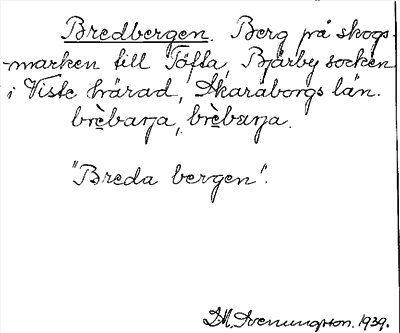 Bredbergen. Berg på skogs-
-marken till Töfta, Bjärby socken
i Viste härad, Skaraborgs län.
brèbarja, brèbarja.
"Breda bergen".
1939.